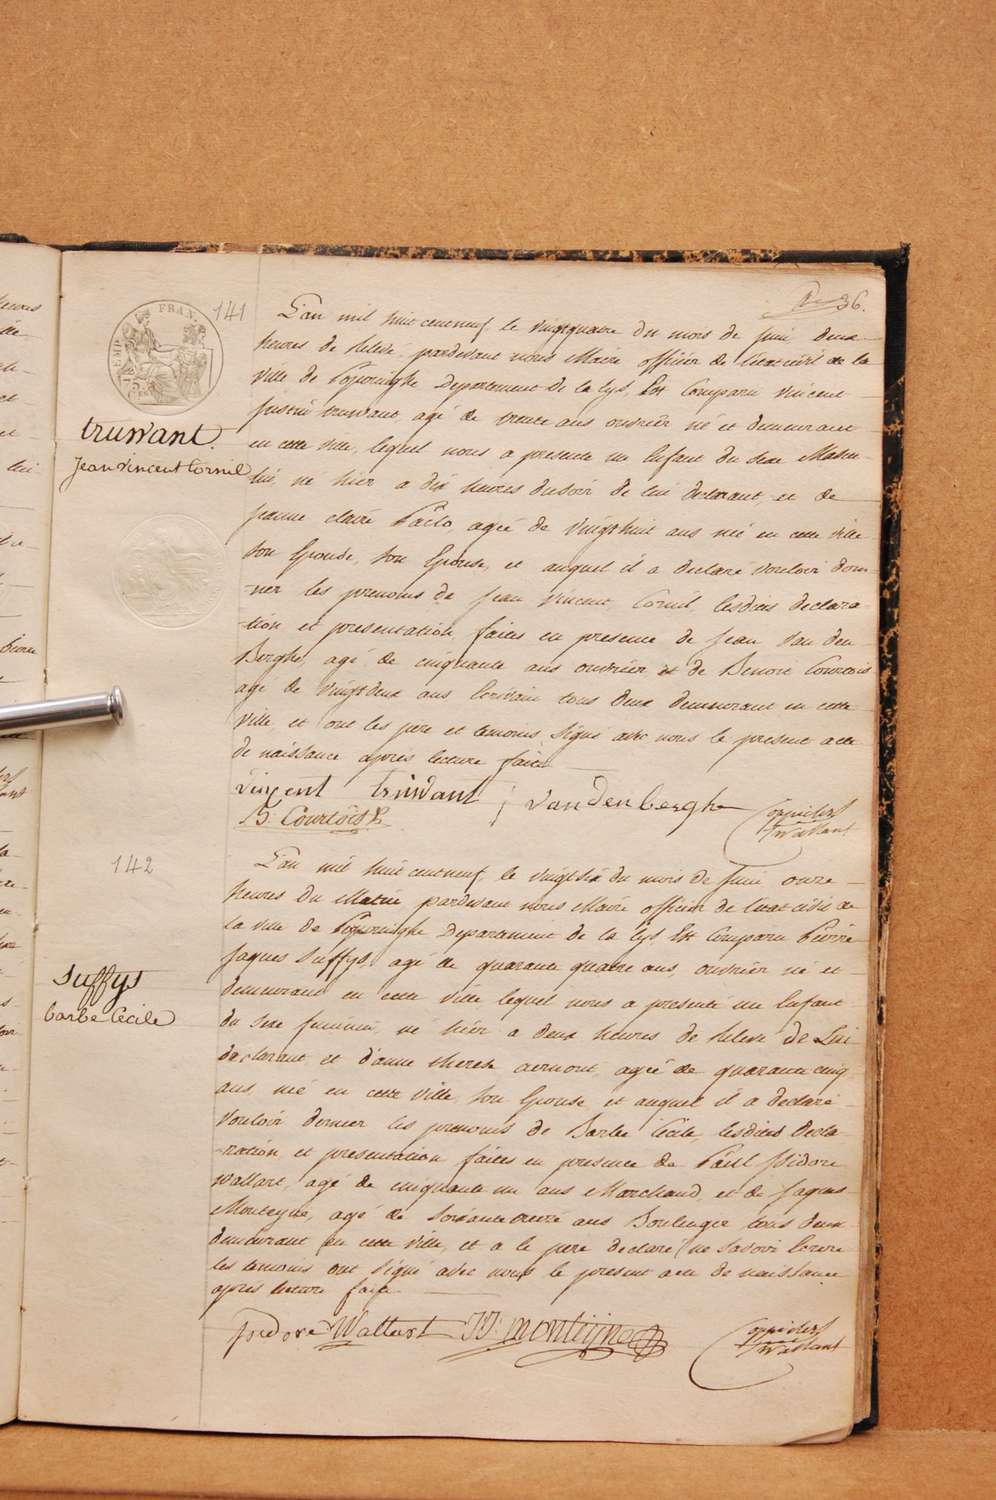 36.
141
L'an mil huit cent neuf, le vingtquatre du mois de Juin deux
heures de relevé, pardevant nous Maire officier de l'etat civil de la
ville de Poperinghe Departement de la Lys, Est Comparu Vincent
Justin truwant, agé de trente ans ouvrier né et demeurant
en cette ville, lequel nous a presenté un Enfant du sexe Mascu-
lin, né hier a dix heures du soir de lui declarant, et de
jeanne claire Paelo agée de vingthuit ans née en cette ville
son Epouse, son Epouse, et auquel il a declaré vouloir don-
-ner les prenoms de Jean Vincent Cornil lesdites declara-
-tion et presentation faites en presence de Jean Van den
Berghe, agé de cinquante ans ouvrier et de Benoit Courtois
agé de vingtdeux ans Ecrivain tous deux demeurant en cette
ville, et ont les pere et temoins signé avec nous le present acte
de naissance après lecture faite
truwant.
Jean Vincent Cornil
vincent truwant j vandenberghe
B. Courtois
142
L'an mil huit cent neuf, le vingtsix du mois de Juin onze
heures du Matin pardevant nous Maire officier de l'etat civil de
la ville de Poperinghe Departement de la Lys, Est Comparu Pierre
Jaques Suffys, agé de quarante quatre ans, ouvrier né et
demeurant en cette ville, lequel nous a presenté un Enfant
du sexe feminin, né hier a deux heures de relevé de Lui
declarant et d'anne therese aernout, agée de quarante cinq
ans, née en cette ville, son Epouse, et auquel il a declaré
vouloir donner les prenoms de Barbe Cécile lesdites decla-
-ration et presentation faites en presence de Paul Isidore
wallart, agé de cinquante un ans Marchand, et de Jaques
Monteyne, agé de soixante treize ans Boulenger tous deux
demeurant en cette ville, et a le pere declaré ne savoir Ecrire
les temoins ont signé avec nous le present acte de naissance
après lecture faite
suffys
barbe Cécile
isidore Wallart J: montijne